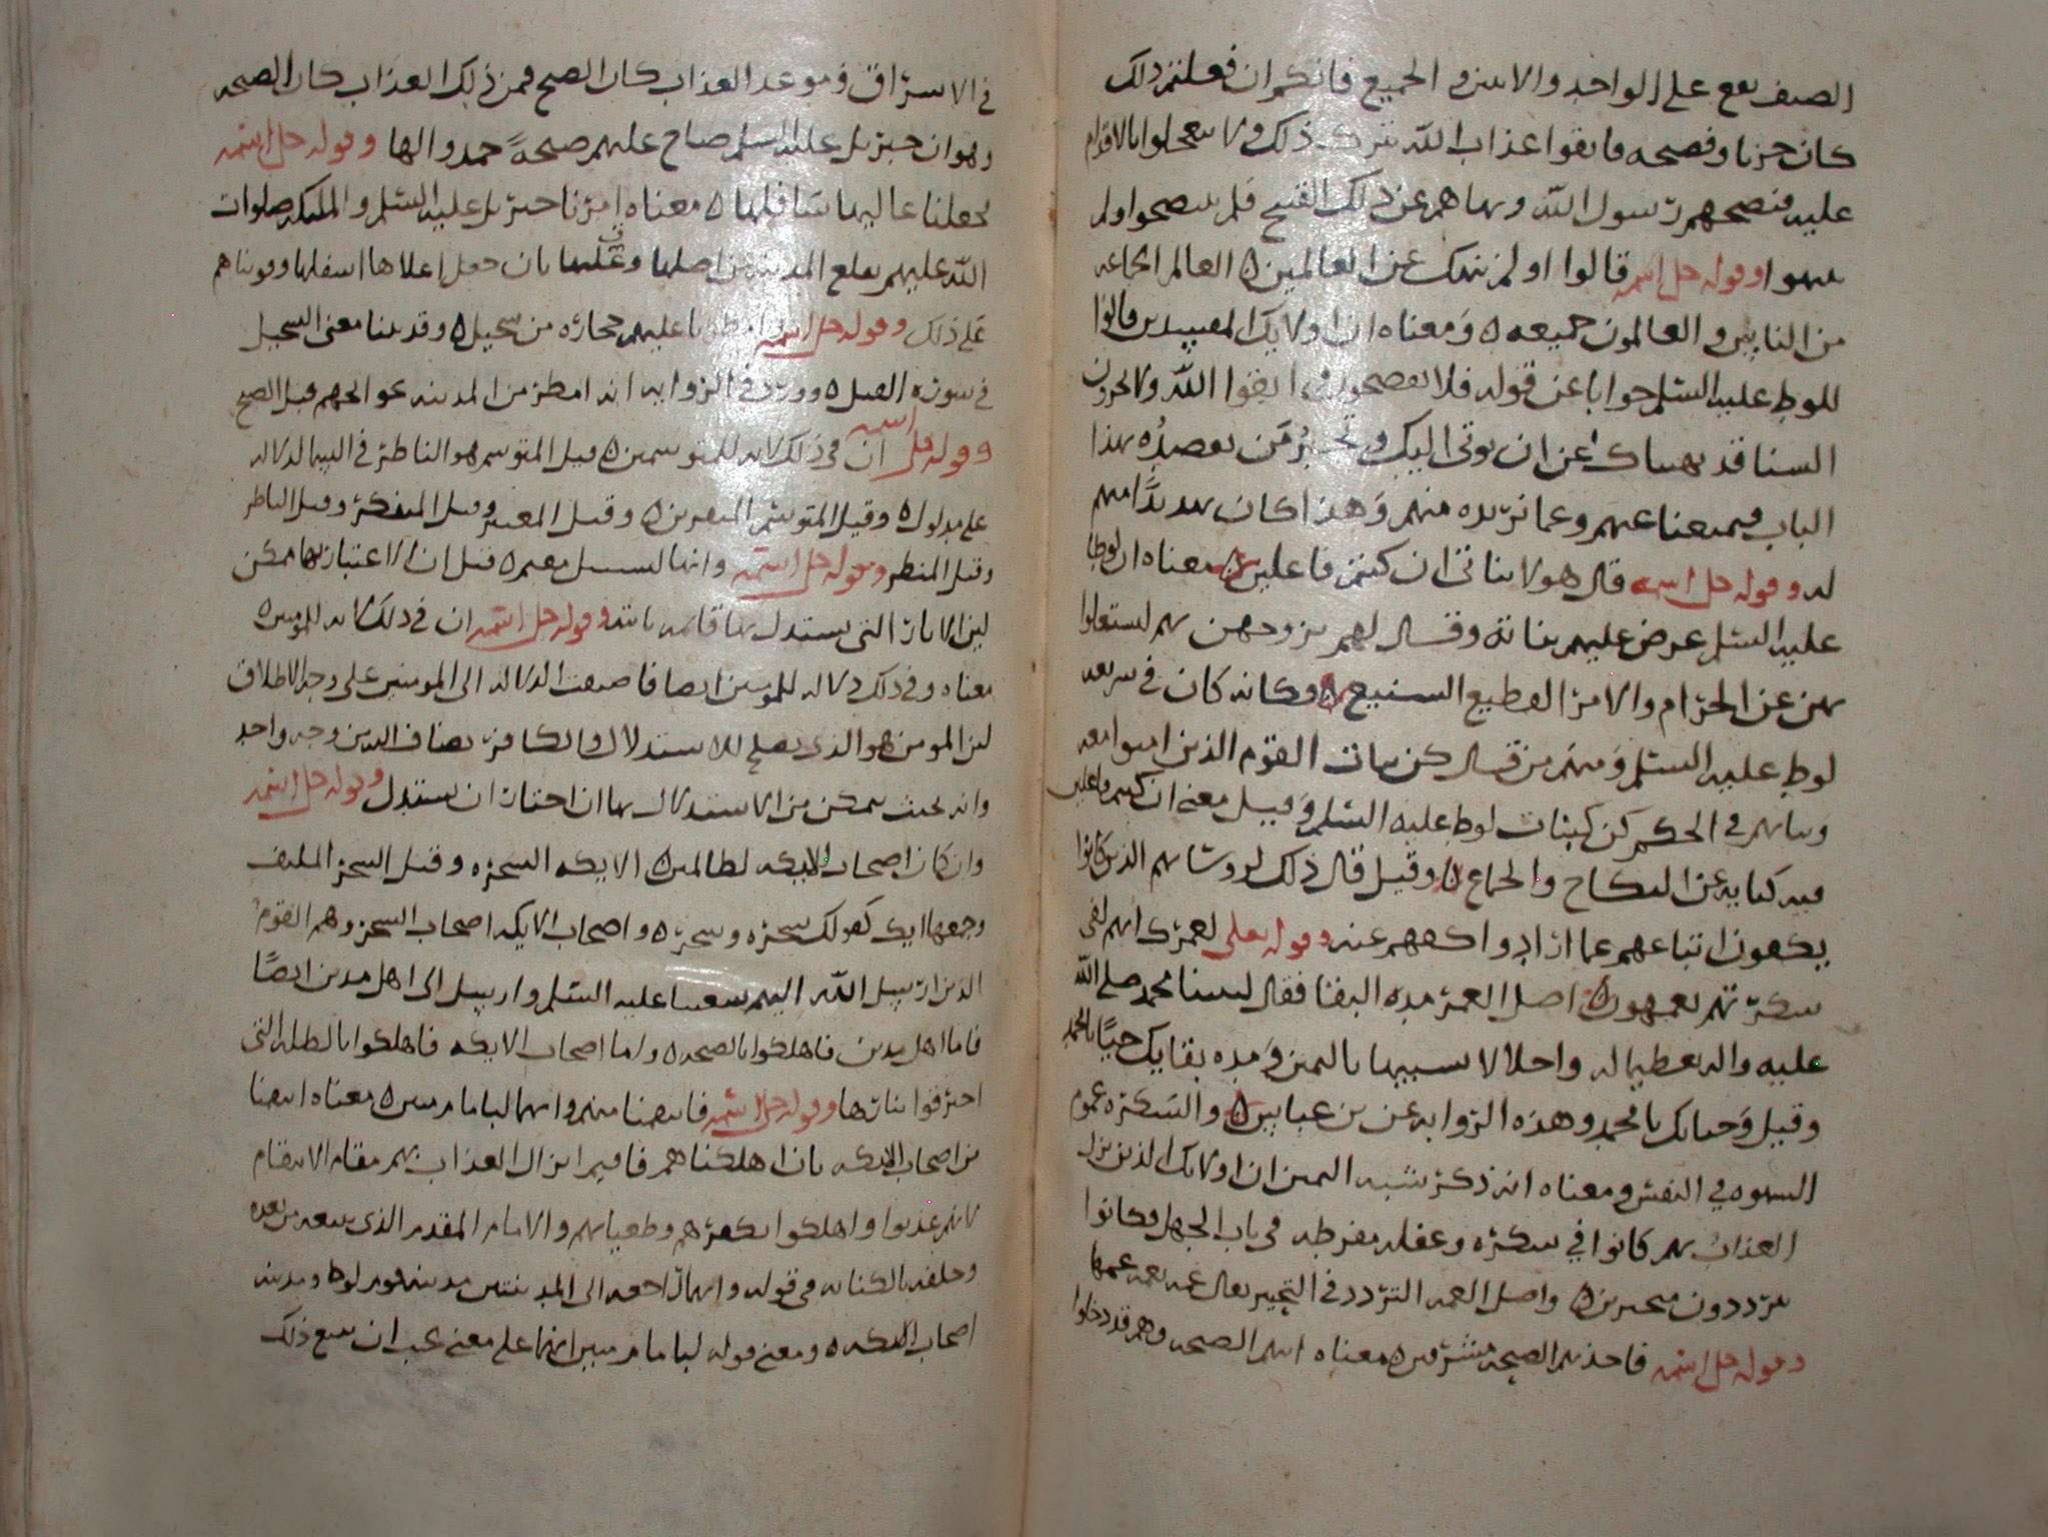 الضيف يقع على الواحد والاثنين والجميع فانكم ان فعلتم ذلك
كان خزيا وفضيحه فاتقوا عذاب الله بترك ذلك ولا تعجلوا بالاقدام
عليه فنصحهم رسول الله ونهاهم عن ذلك القبيح فلم ينتصحوا ولم
ينتهوا وقوله جل اسمه قالوا اولم ننهك عن العالمين ٥ العالم الجماعه
من الناس والعالمون جميعه ٥ ومعناه ان اولايك المفسدين قالوا
للوط عليه السلم جوابا عن قوله فلا تفضحون واتقوا الله ولا تخزون
السنا قد نهيناك عن ان يوتى اليك وتجير من يقصده بهذا
الباب فيمنعنا عنهم وعما نريده منهم وهذا كان تهديدا منهم
له وقوله جل اسمه قال هولا بناتي ان كنتم فاعلين ٥ معناه ان لوطا
عليه السلم عرض عليهم بناته وقال لهم بزوجهن بهم ليستغنوا
بهن عن الحرام والامر الفظيع الشنيع ٥ وكانه كان في شريعه
لوط عليه السلم ومنهم من قال كن بنات القوم الذين امنوا معه
وبناتهم في الحكم كن كبنات لوط عليه السلم وقيل معنى ان كنتم فاعلين
فيه كنايه عن النكاح والجماع ٥ وقيل قال ذلك لروسائهم الذين كانوا
يكفون اتباعهم عما ارادوا كفهم عنه وقوله تعلى لعمرك انهم لفي
سكرتهم يعمهون ٥ اصل العمر مده البقا فقال لنبينا محمد صلى الله
عليه واله تعظيما له واجلالا لسببها باليمن ومده بقايك حيا يا محمد
وقيل وحياتك يا محمد وهذه الروايه عن بن عباس ٥ والسكره غموم
السهوه في النفس ومعناه انه ذكر شبه اليمين ان اولايك الذين نزل
العذاب بهم كانوا في سكره وغفله مفرطه في باب الجهل وكانوا
يترددون متحيرين ٥ واصل العمه التردد في التحير يقال عمه يعمه عمها
وقوله جل اسمه فاخذتهم الصيحه مشرقين ٥ معناه اتتهم الصيحه وهم قد دخلوا
في الاشراق وموعد العذاب كان الصبح فمن ذلك العذاب كان الصيحه
وهو ان جبريل عليه السلم صاح عليهم صيحة خمدوا لها وقوله جل اسمه
فجعلنا عاليها سافلها ٥ معناه امرنا جبريل عليه السلم والمليكه صلوات
الله عليهم بقلع المدينه من اصلها وقلبها بان جعل اعلاها اسفلها وقوتناهم
على ذلك وقوله جل اسمه وامطرنا عليهم حجاره من سجيل ٥ وقد بينا معنى السجيل
في سوره الفيل ٥ وورد في الروايه انه امطر من المدينه نحو الجهم قبل الصبح
وقوله جل اسمه ان في ذلك لايه للمتوسمين ٥ قيل المتوسم هو الناظر في السمه الداله
على مدلول ٥ وقيل المتوسم المتفرس ٥ وقيل المعتبر وقيل المتفكر وقيل الناظر
وقيل المنتظر وقوله جل اسمه وانها لبسبيل مقيم ٥ قيل ان الاعتبار بها ممكن
لين الايات التي يستدل بها قايمه ثابته وقوله جل اسمه ان في ذلك لايه للمومنين ٥
معناه وفي ذلك دلاله للمومنين ايضا فاضيفت الدلاله الى المومنين على وجه الاطلاق
لين المومن هو الذي يصلح للاستدلال والكافر يضاف اليه من وجه واحد
وانه بحيث يمكن من الاستدلال بها ان اختار ان يستدل وقوله جل اسمه
وان كان اصحاب الايكه لظالمين ٥ الايكه الشجره وقيل الشجر الملتف
وجمعها ايك كقولك شجره وشجر ٥ واصحاب الايكه اصحاب الشجر وهم القوم
الذين ارسل الله اليهم شعيبا عليه السلم وارسل الى اهل مدين ايضا
فاما اهل مدين فاهلكوا بالصيحه ٥ واما اصحاب الايكه فاهلكوا بالظله التي
احترقوا بنارها وقوله جل اسمه فانتقمنا منهم وانهما لبامام مبين ٥ معناه انتقمنا
من اصحاب الايكه بان اهلكناهم فاقيم انزال العذاب بهم مقام الانتقام
لانهم عذبوا واهلكوا بكفرهم وطغيانهم والامام المقدم الذي يتبعه من بعده
وخلفه بالكنايه في قوله وانهما راجعه الى المدينتين مدينه قوم لوط ومدينه
اصحاب الايكه ٥ ومعنى قوله لبامام مبين انهما على معنى يجب ان يتبع ذلك